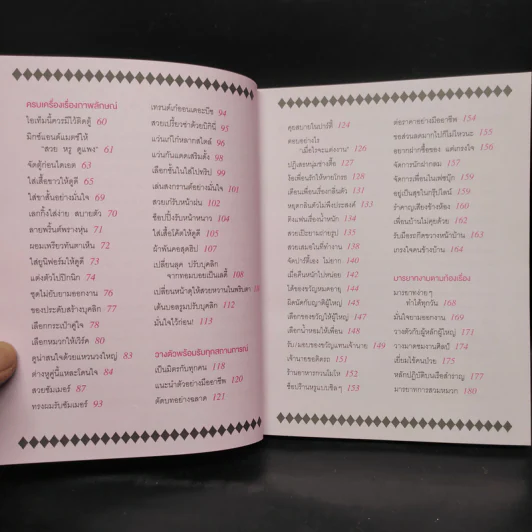 ครบเครื่องเรื่องภาพลักษณ์
ไอเท็มนี้ควรมีไว้ติดตู้ 60
มิกซ์แอนด์แมตช์ให้
"สวย หรู ดูแพง" 61
จัดตู้ก่อนไดเอต 63
ใส่เสื้อขาวให้ดูดี 65
ใส่ขาสั้นอย่างมั่นใจ 69
เลกกิ้งใส่ง่าย สบายตัว 70
ลายพริ้นต์พรางหุ่น 71
ผอมเพรียวทันตาเห็น 72
ใส่ยูนิฟอร์มให้ดูดี 73
แต่งตัวไปปิกนิก 74
ชุดไม่ขับยามออกงาน 76
ของประดับสร้างบุคลิก 77
เลือกกระเป๋าคู่ใจ 79
เลือกหมวกให้เวิร์ค 80
ดูน่าสนใจด้วยแหวนวงใหญ่ 83
ต่างหูคู่นี้แหละโดนใจ 84
สวยซัมเมอร์ 87
ทรงผมรับซัมเมอร์ 93
เทรนด์เก๋ออนเดอะบีช 94
สวยเปรี้ยวซ่าด้วยบิกินี่ 95
แว่นเก๋ไก๋หลากสไตล์ 96
แว่นกันแดดเสริมดั้ง 98
เลือกชั้นในใส่ไปทริป 99
เล่นสงกรานต์อย่างมั่นใจ 101
สวยเก๋รับหน้าฝน 102
ช็อปปิ้งรับหน้าหนาว 104
ใส่เสื้อโค้ตให้ดูดี 105
ผ้าพันคอสุดฮิป 107
เปลี่ยนลุค ปรับบุคลิก
จากทอมบอยเป็นเลดี้ 108
เปลี่ยนหน้าดุให้สวยหวานในพริบตา
เต้นบอลรูมปรับบุคลิก 112
มั่นใจไว้ก่อน! 113
วางตัวพร้อมรับทุกสถานการณ์
เป็นมิตรกับทุกคน 118
แนะนำตัวอย่างมืออาชีพ 120
ตัดบทอย่างฉลาด 121
คุยสบายในปาร์ตี้ 124
ตอบอย่างไร
"เมื่อไรจะแต่งงาน" 126
ปฏิเสธหนุ่มช่างตื๊อ 127
ง้อเพื่อนรักให้หายโกรธ 128
เตือนเพื่อนเรื่องกลิ่นตัว 131
หยุดกอสซิปไม่พึงประสงค์ 133
ติงแฟนเรื่องน้ำหนัก 134
สวยเปียยามถ่ายรูป 135
สวยเสมอในที่ทำงาน 138
จัดปาร์ตี้เอง ไม่ยาก 141
เมื่อคืนหนักไปหน่อย 142
ได้ของขวัญหมดอายุ 144
มีดนัดกับญาติผู้ใหญ่ 145
เลือกของขวัญให้ผู้ใหญ่ 147
เลือกน้ำหอมให้เพื่อน 148
รับ/มอบของขวัญแทนเจ้านาย 149
เจ้านายรถติดรถ 151
ร้านอาหารกวนโมโห 152
ช็อปร้านหรูแบบชิลๆ 153
ต่อราคาอย่างมืออาชีพ 154
ขอส่วนลดมากไปก็ไม่ไหวนะ 135
อยากฝากซื้อของ แต่เกรงใจ 156
จัดการนักฝากสม 157
จัดการเพื่อนในเฟซบุ๊ก 159
อยู่เป็นสุขในกรุ๊ปไลน์ 159
รำคาญเสียงข้างห้อง 160
เพื่อนบ้านไม่คุยด้วย 162
รับมือรถกีดขวางหน้าบ้าน 163
เกรงใจคนข้างบ้าน 164
มารยาทงามตามท้องเรื่อง
มารยาทง่ายๆ
ทำได้ทุกวัน 168
มั่นใจยามออกงาน 169
วางตัวกับผู้หลักผู้ใหญ่ 171
วางมาดชมงานศิลป์ 172
เยี่ยมไข้คนป่วย 175
หลักปฏิบัติบนเรือสำราญ 177
มารยาทการสวมหมวก 180